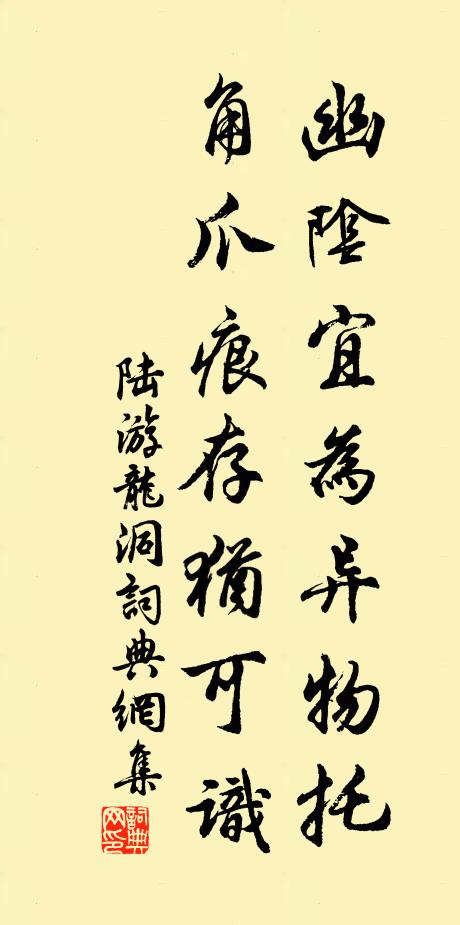 幽陰宜為异物托
角爪痕存猶可識
陆游龍洞詞典網集
詞典网印